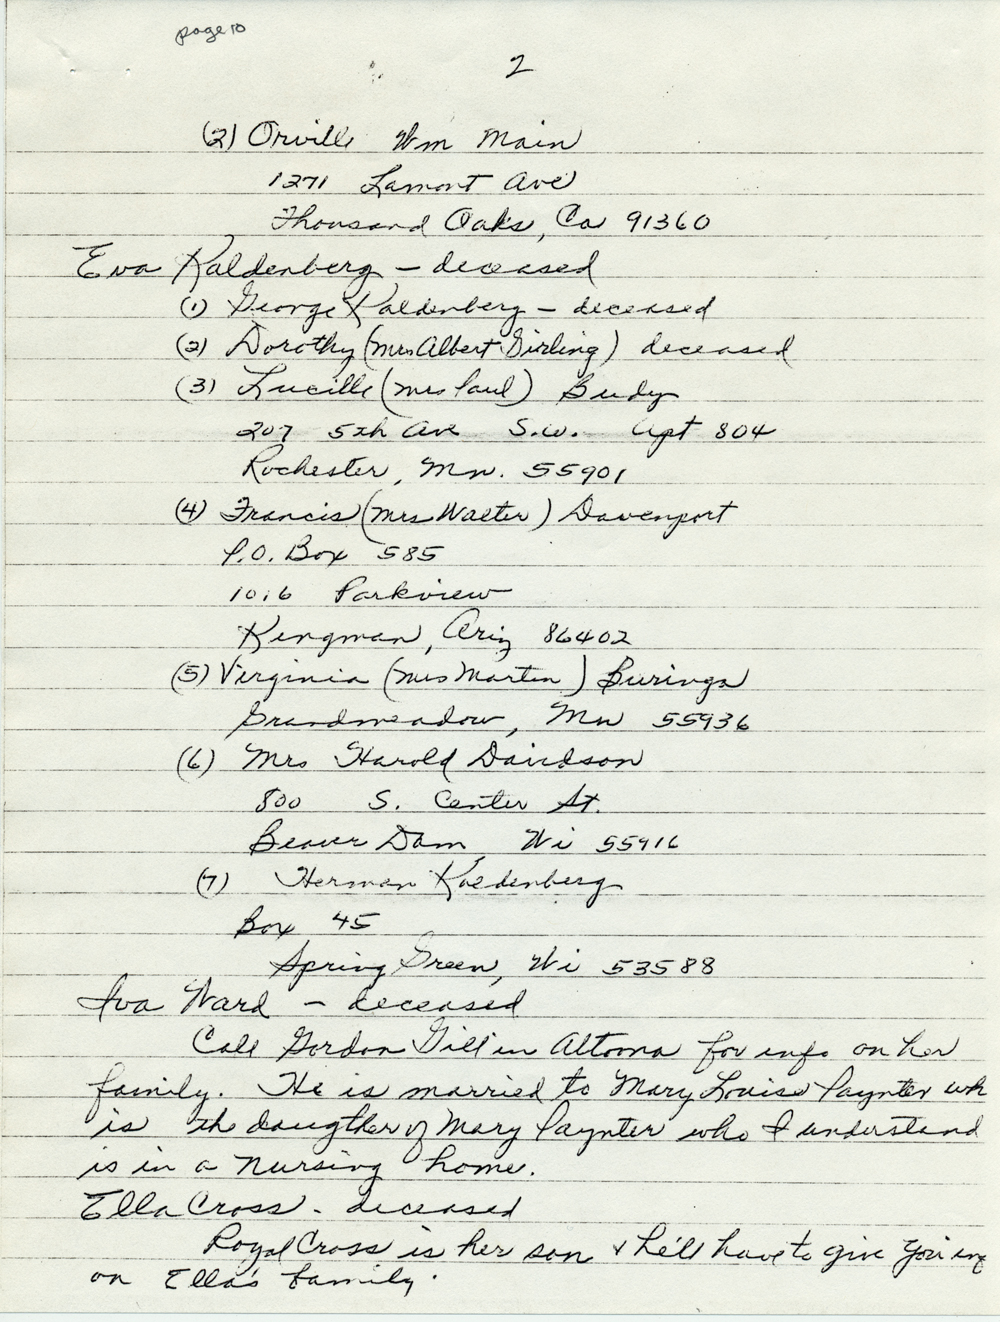 page 10
2
(2) Orville Wm Main
1271 Lamont Ave
Thousand Oaks, Ca 91360
Eva Kaldenberg - deceased
(1) George Kaldenberg - deceased
(2) Dorothy (Mrs Albert Girling) deceased
(3) Lucille (Mrs Paul) Budy
207 5th Ave S.W. Apt 804
Rochester, Mn. 55901
(4) Francis (Mrs Walter) Davenport
P.O. Box 585
1016 Parkview
Kingman, Ariz 86402
(5) Virginia (Mrs Martin) Buringa
Grandmeadow, Mn 55936
(6) Mrs Harold Davidson
800 S. Center St.
Beaver Dam, Wi 55916
(7) Herman Kaldenberg
Box 45
Spring Green, Wi 53588
Iva Ward - deceased
Call Gordon Gill in Altoona for info on her
family. He is married to Mary Louise Paynter wh
is the daugther of Mary Paynter who I understand
is in a nursing home.
Ella Cross - deceased
Royal Cross is her son & he'll have to give you inf
on Ella's family.